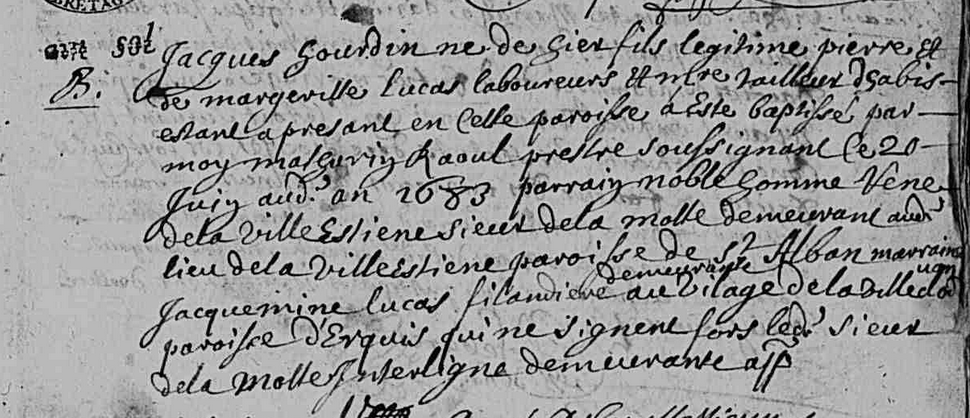 BRETAG
B.
Jacques Hourdin ne de hier fils legitime pierre et
de margeritte Lucas laboureurs et mre tailleur dhabis
estant apresant en Cette paroisse a Este baptissé par
moy mathuriy Raoul prestre soussignant Ce 20
Juiy aud.t an 1683 parraiy noble homme Rene
dela Ville Estiene sieur dela motte demeurant aud.t
lieu dela Ville Estiene paroisse de St Alban marraine
demeurante
Jacquemine Lucas filandiere au Vilage dela Ville
paroisse d'Erquis qui ne signent fors led.t sieur
dela Motte Interligne demeurante app